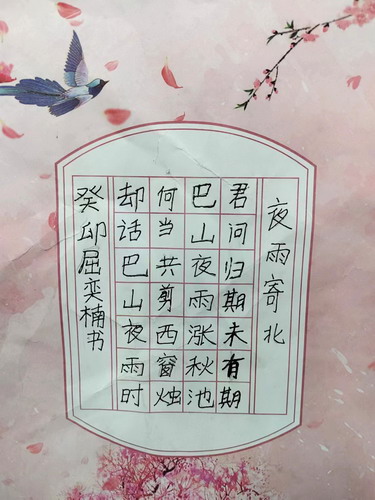 夜雨寄北
君问归期未有期
巴山夜雨涨秋池
何当共剪西窗烛
却话巴山夜雨时
癸卯屈奕楠书